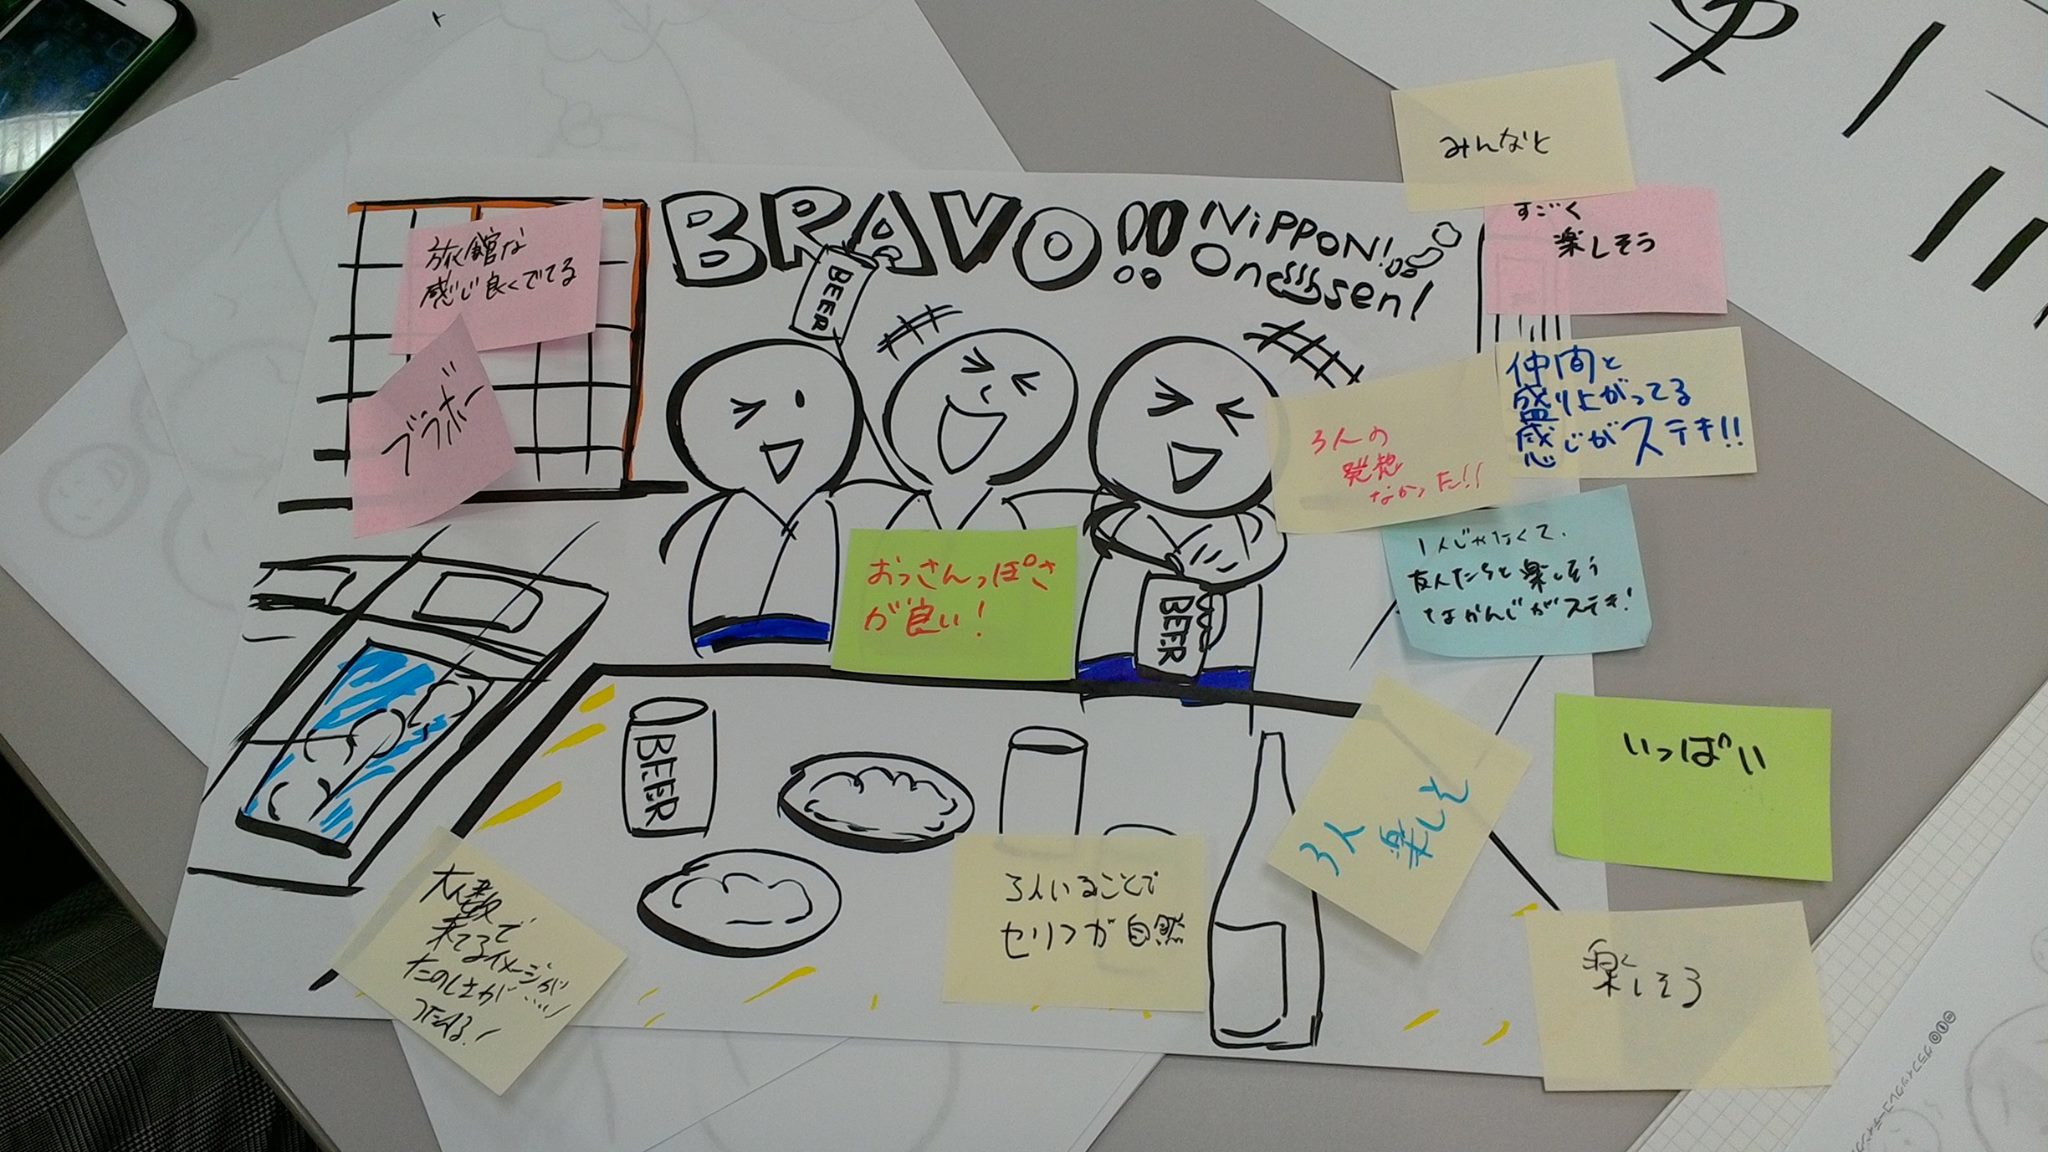 BRAVO!!
NiPPON!
On♨sen!
BEER
みんなと
すごく
楽しそう
旅館な
感じ良くでてる
ブラボー
仲間と
盛り上がってる
感じがステキ!!
3人の
発想
なかった!!
1人じゃなくて、
友人たちと楽しそう
なかんじがステキ!
おっさんっぽさ
が良い!
BEER
BEER
いっぱい
3人
楽しそ
3人いることで
セリフが自然
大人数
来てるイメージが
たのしさが
つたわる!
楽しそう